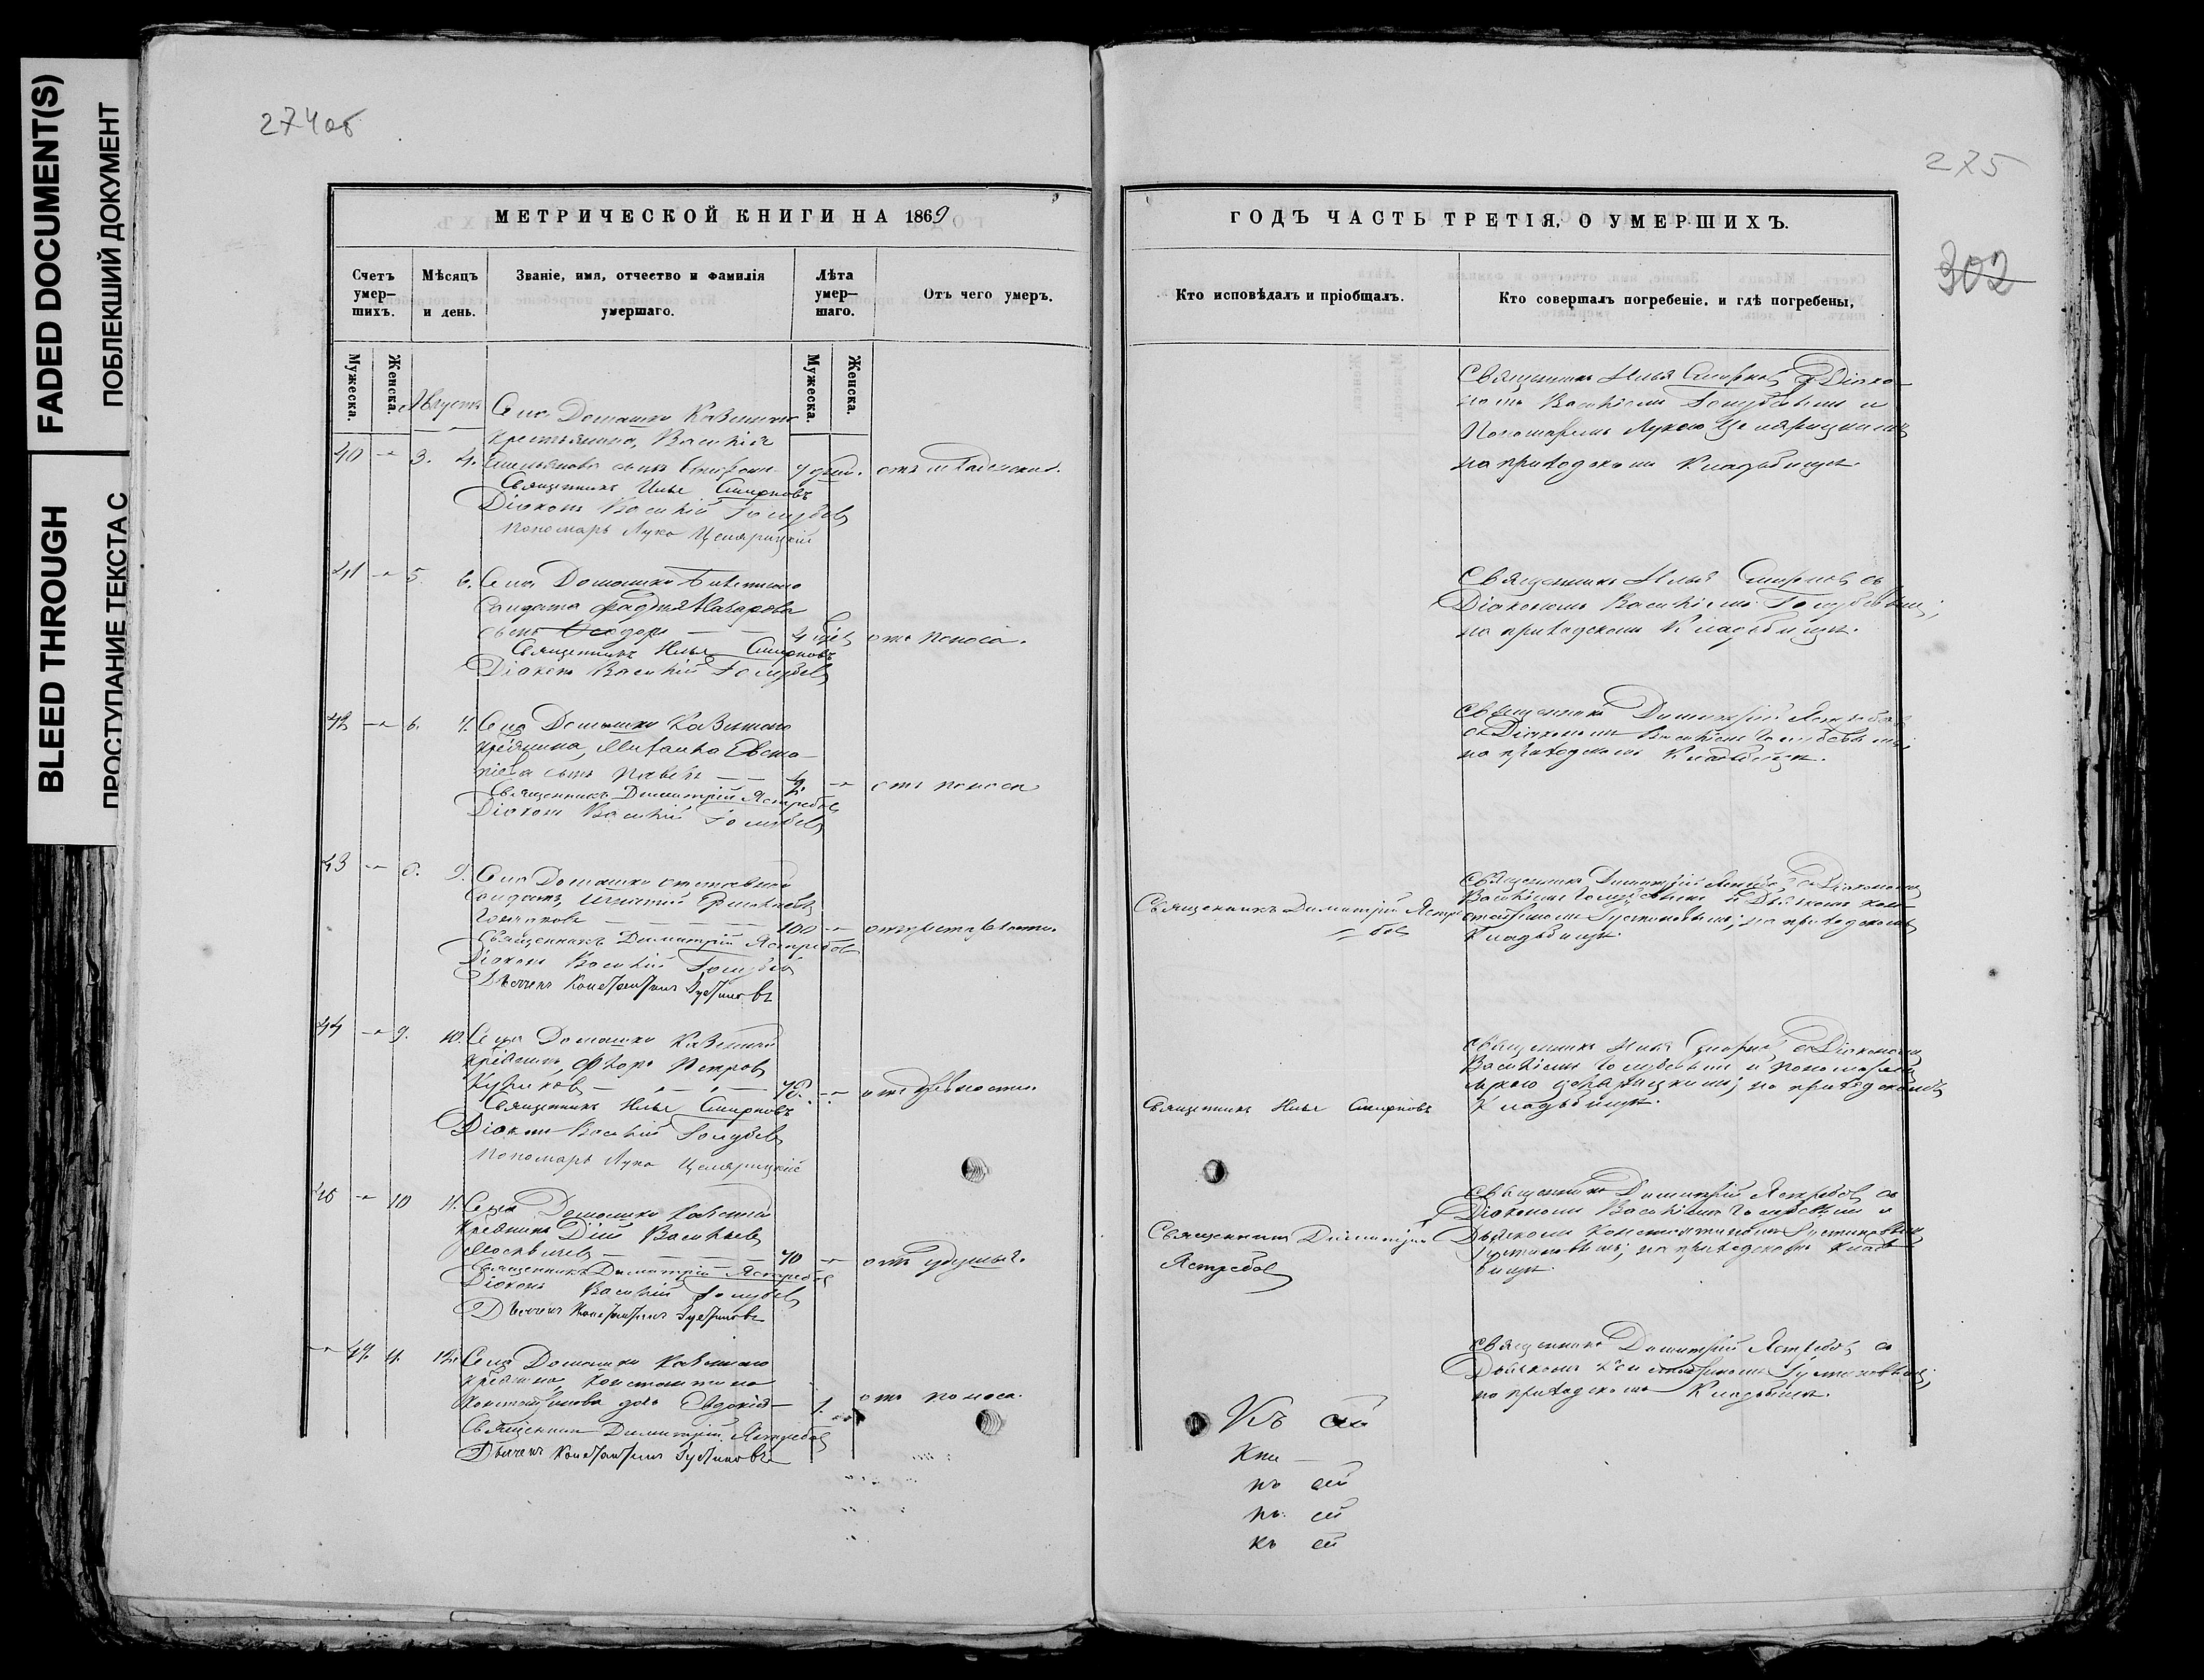 FADED DOCUMENT(S)
ПОБЛЕКШИЙ ДОКУМЕНТ
BLEED THROUGH
ПРОСТУПАНИЕ ТЕКСТА С
274об
275
302
МЕТРИЧЕСКОЙ КНИГИ НА 1869
Счетъ умер-шихъ.
Мѣсяцъ и день.
Званіе, имя, отчество и фамилія умершаго.
Лѣта умер-шаго.
Отъ чего умеръ.
Мужеска.
Женска.
Мужеска.
Женска.
Августа
Села Домашки Казеннаго
Крестьянина, Василія
40 3. 4. Емельянова сынъ 7 дней. отъ младенческой.
Священникъ Илья Смирновъ
Діаконъ Василій Голубевъ
Пономарь Лука Цемярицкій
41 5. 6. Села Домашки Билетнаго
Солдата Фадея Макарова
сынъ Ѳеодоръ 4 отъ поноса.
Священникъ Илья Смирновъ
Діаконъ Василій Голубевъ
42 6. 7. Села Домашки Казеннаго
Кресянина, Митрофана
сынъ Павелъ отъ поноса
Священникъ Димитрій Ястребовъ
Діаконъ Василій Голубевъ
43 8. 9. Села Домашки отставной
Солдатъ, Игнатій
100 отъ старости.
Священникъ Димитрій Ястребовъ
Діаконъ Василій Голубевъ
Дьячекъ Константинъ Густиновъ
44 9. 10. Села Домашки Казенный
Кресянинъ, Флоръ Петровъ
Куликовъ 78. отъ древности.
Священникъ Илья Смирновъ
Діаконъ Василій Голубевъ
Пономарь Лука Цемярицкій
45 10 11. Села Домашки Казенный
Кресянинъ Дій Васильевъ
Москвичевъ 70 отъ удушья.
Священникъ Димитрій Ястребовъ
Діаконъ Василій Голубевъ
Дьячекъ Константинъ Густиновъ
47. 11. 12. Села Домашки Казеннаго
Кресянина, Константина
Константинова дочь Евдокія 1. отъ поноса.
Священникъ Димитрій Ястребовъ
Дьячекъ Константинъ Густиновъ
ГОДЪ ЧАСТЬ ТРЕТІЯ, О УМЕРШИХЪ.
Кто исповѣдалъ и пріобщалъ.
Кто совершалъ погребеніе, и гдѣ погребены,
Священникъ Илья Смирновъ съ Діако-
номъ Василіемъ Голубевымъ и
Пономаремъ Лукою Цемярицкимъ
на приходскомъ Кладбищѣ.
Священникъ Илья Смирновъ съ
Діакономъ Василіемъ Голубевымъ;
на приходскомъ Кладбищѣ.
Священникъ Димитрій Ястребовъ
съ Діакономъ Василіемъ Голубевымъ;
на приходскомъ Кладбищѣ.
Священникъ Димитрій Ястре
бовъ
Священникъ Димитрій Ястребовъ съ Діакономъ
Василіемъ Голубевымъ и Дьячкомъ Кон-
стантиномъ Густиновымъ; на приходскомъ
Кладбищѣ.
Священникъ Илья Смирновъ
Священникъ Илья Смирновъ съ Діакономъ
Василіемъ Голубевымъ и Пономаремъ
Лукою Цемярицкимъ; на приходскомъ
Кладбищѣ.
Священникъ Димитрій
Ястребовъ
Священникъ Димитрій Ястребовъ съ
Діакономъ Василіемъ Голубевымъ и
Дьячкомъ Константиномъ Густиновымъ
на приходскомъ Клад-
бищѣ.
Священникъ Димитрій Ястребовъ съ
Дьячкомъ Константиномъ Густиновымъ;
на приходскомъ Кладбищѣ.
Къ сей
Кни